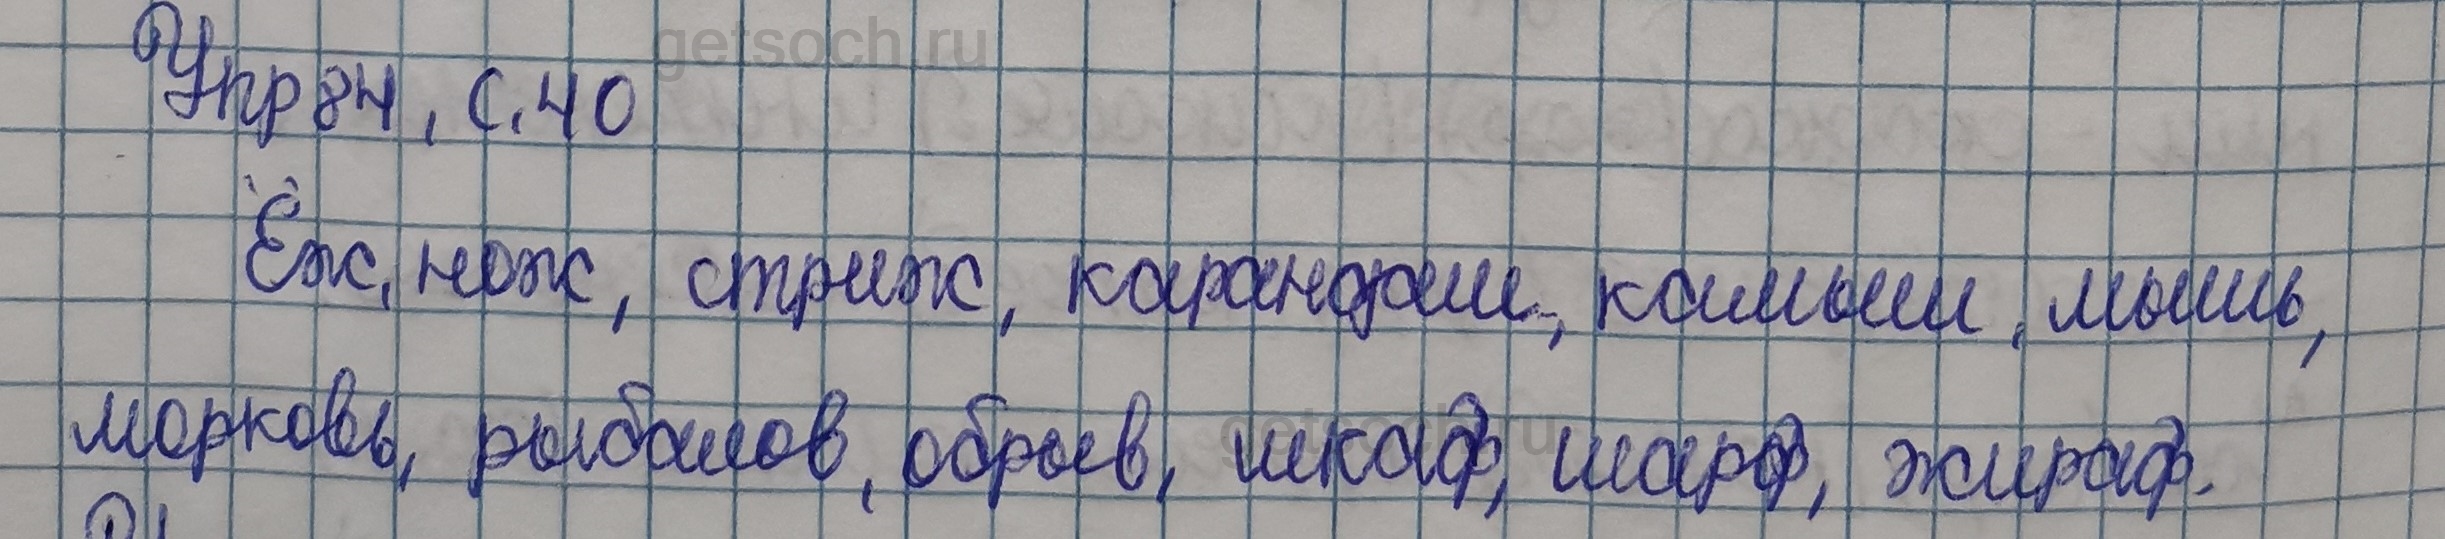 getsoch.ru
Упр 84, с. 40
Ёж, нож, стриж, карандаш, камыш, мышь,
морковь, рыболов, обрыв, шкаф, шарф, жираф.
getsoch.ru